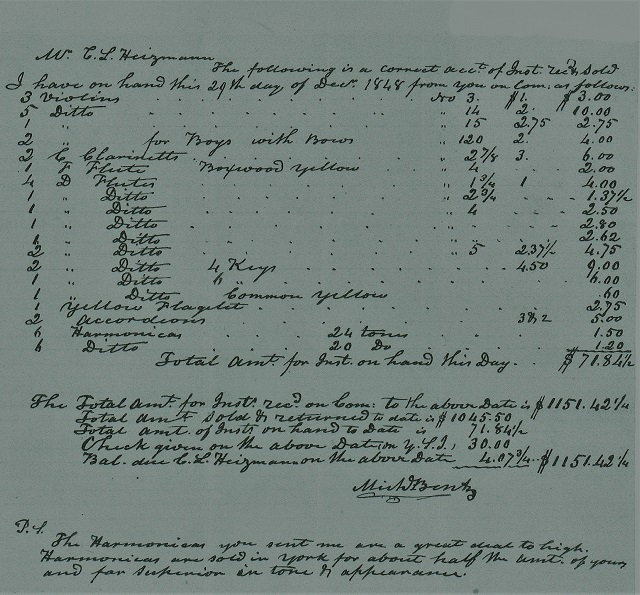 Mr. C. L. Heizmann
The following is a correct acct. of Inst. recd. & Sold
I have on hand this 29th day of Decr. 1848 from you on Com: as follows:
3 Violins No 3. $1. $3.00
5 Ditto " 14 2. 10.00
1 " " 15 2.75 2.75
2 " for Boys with Bows 120 2. 4.00
2 C Clarinetts " 2 7/8 3. 6.00
1 F Flute Boxwood Yellow " 4 2.00
4 D Flutes " 1 3/4 1 4.00
1 " Ditto " 2 3/4 1.37 1/2
1 " Ditto " 4 2.50
1 " Ditto 2.80
1 Ditto 2.62
2 " Ditto " 5 2.37 1/2 4.75
2 " Ditto 4 Keys 4.50 9.00
1 " Ditto 6 " 6.00
1 " Ditto Common Yellow .60
1 Yellow Flagelet 2.75
2 Accordions 5.00
6 Harmonicas 24 tones 1.50
6 Ditto 20 Do 1.20
Total Amt. for Inst. on hand this Day. $71.84 1/2
The Total Amt. for Insts. recd. on Com: to the above Date is $1151.42 1/4
Total amt. Sold & returned to date is $1045.50
Total amt. of Insts on hand to Date is 71.84 1/2
Check given on the above Date on Y.S.I, 30.00
Bal. due C. L. Heizmann on the above Date 4.07 3/4 $1151.42 1/4
Michl Bentz
P.S.
The Harmonicas you sent me are a great deal to high.
Harmonicas are sold in York for about half the amt. of yours
and far Superior in tone & appearance.